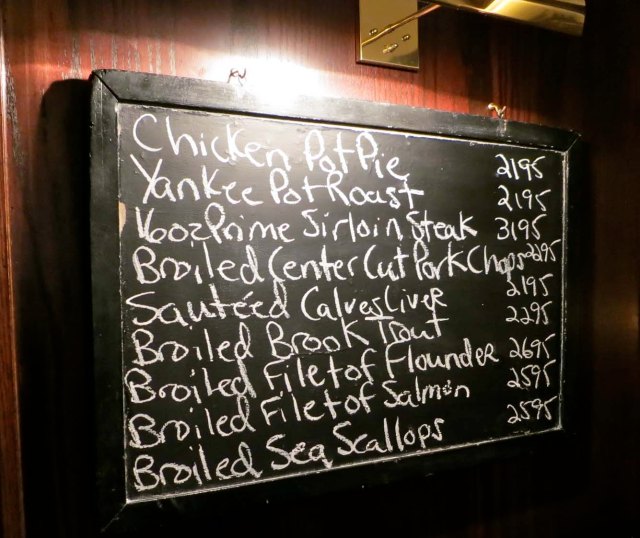 Chicken Pot Pie 2195
Yankee Pot Roast 2195
16oz Prime Sirloin Steak 3195
Broiled Center Cut Pork Chops 2295
Sautéed Calves Liver 2195
Broiled Brook Trout 2295
Broiled Filet of Flounder 2695
Broiled Filet of Salmon 2595
Broiled Sea Scallops 2595